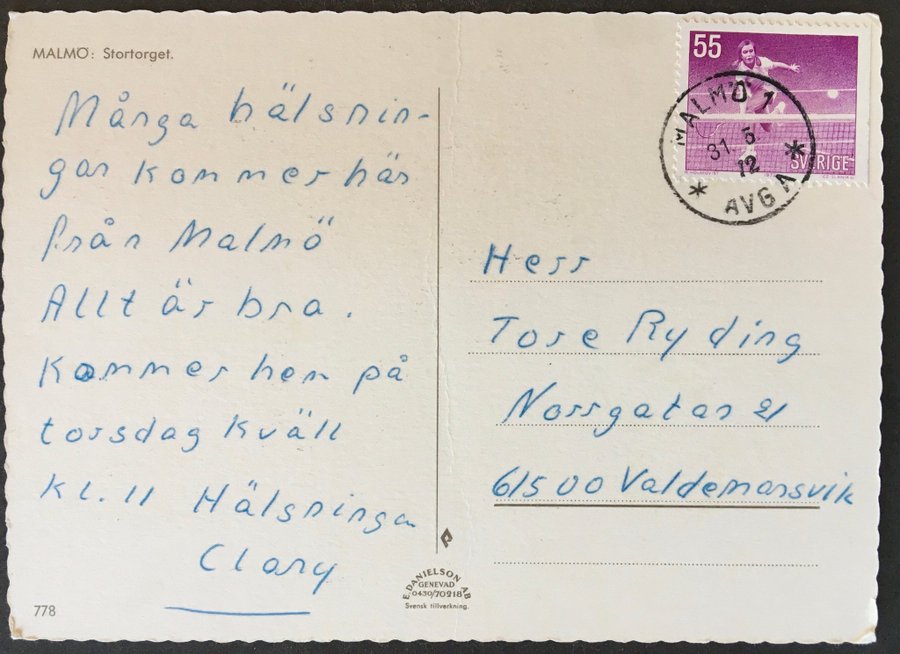 MALMÖ: Stortorget.
Många hälsnin-
gar kommer här
från Malmö
Allt är bra.
Kommer hem på
torsdag kväll
kl. 11 Hälsningar
Clary
778
55
SVERIGE
MALMÖ 1
31. 5
72
* AVG A *
Herr
Tore Ryding
Norrgatan 21
615 00 Valdemarsvik
E. DANIELSON AB
GENEVAD
0430/70218
Svensk tillverkning.